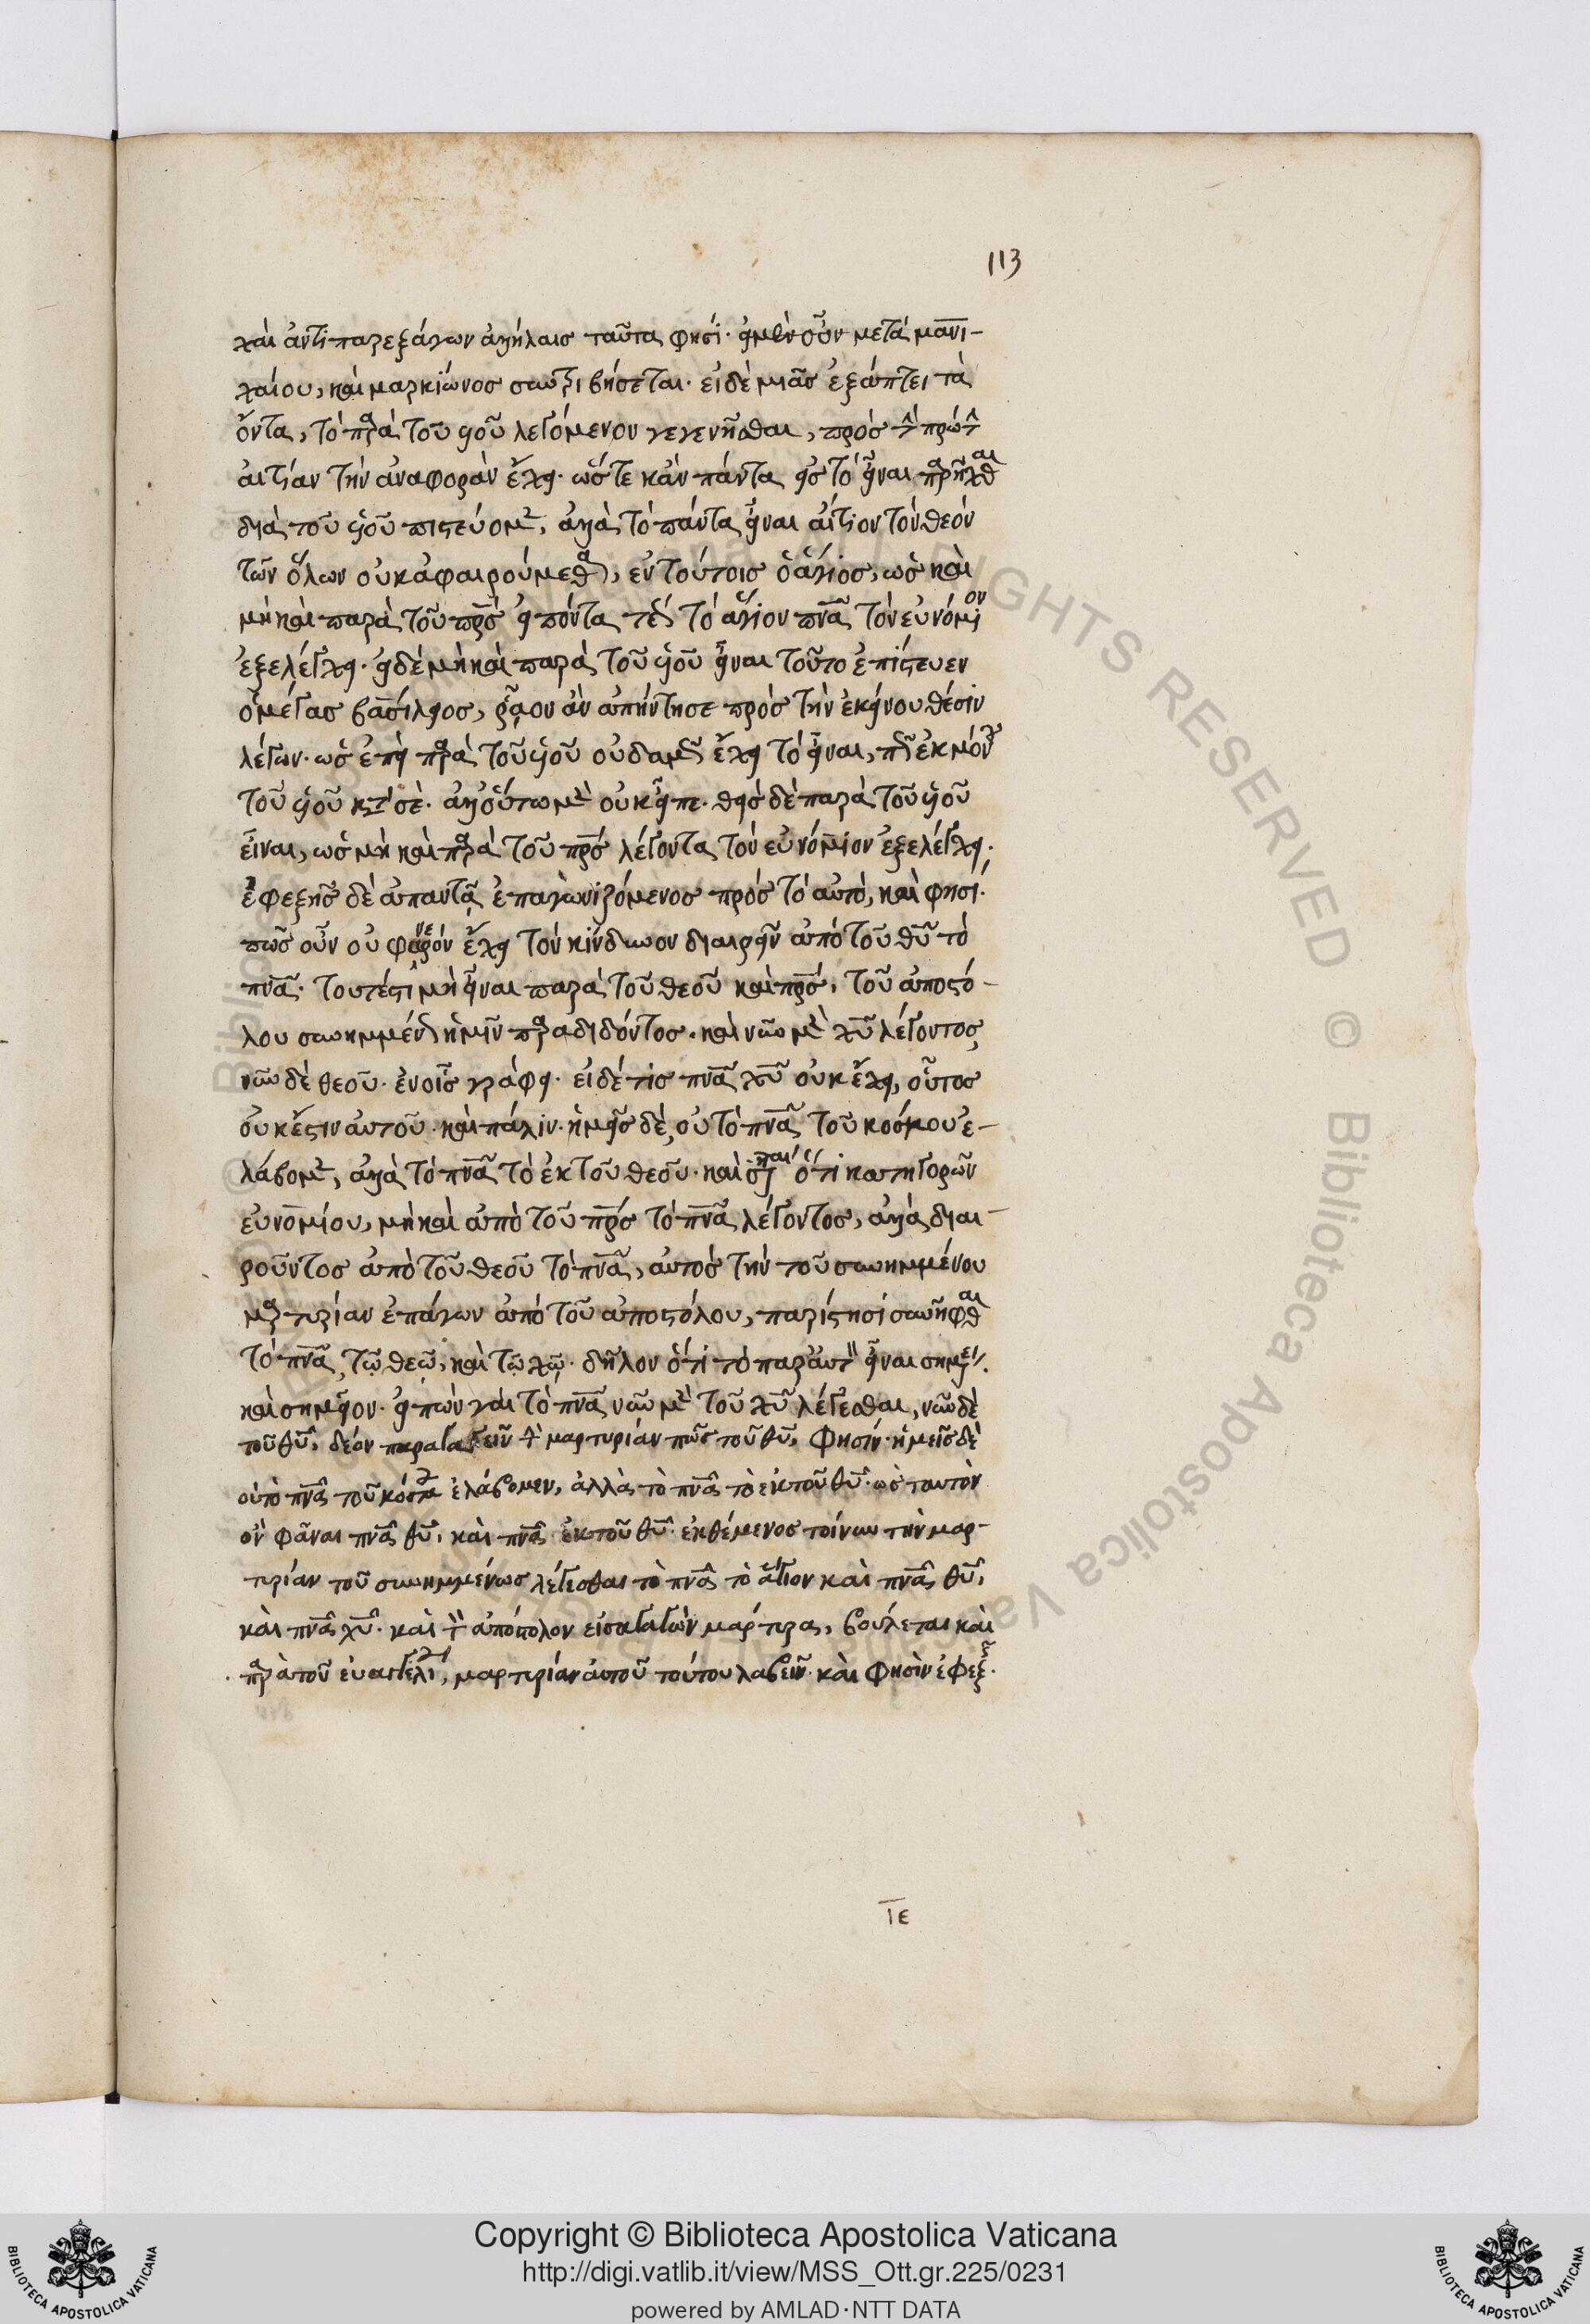 113
χὰς ἀντιπαρεξάγων ἀλλήλαις ταῦτα φησί· εἰ μὲν οὖν μετὰ μανι-
χαίου, καὶ μαρκίωνος συντριβήσεται· εἰ δὲ μιᾶς ἐξάπτει τὰ
ὄντα, τὸ πρὰ τοῦ υἱοῦ λεγόμενον γεγενῆσθαι, πρὸς τ πρώτ
αἰτίαν τὴν ἀναφορὰν ἔχει· ὥστε κἂν πάντα εἰς τὸ εἶναι πρῆχθαι
διὰ τοῦ υἱοῦ πιστεύομ, ἀλλὰ τὸ πάντα εἶναι αἴτιον τὸν θεὸν
τῶν ὅλων οὐκ ἀφαιρούμεθα, ἐν τούτοις ὁ ἅγιος, ὡς καὶ
μὴ καὶ παρὰ τοῦ πρς εἰπόντα τὸ ἅγιον πνα τὸν εὐνόμιον
ἐξελέγχει· εἰ δὲ μὴ καὶ παρὰ τοῦ υἱοῦ εἶναι τοῦτο ἐπίστευεν
ὁ μέγας βασίλειος, ῥᾷον ἂν ἀπήντησε πρὸς τὴν ἐκείνου θέσιν
λέγων· ὡς ἐπεὶ πρὰ τοῦ υἱοῦ οὐδαμῶς ἔχει τὸ εἶναι, πῶς ἐκ μόν
τοῦ υἱοῦ κτ σέ· ἀλλ' οὕτω μὲν οὐκ εἶπε· θεὶς δὲ παρὰ τοῦ υἱοῦ
εἶναι, ὡς μὴ καὶ πρὰ τοῦ πρς λέγοντα τὸν εὐνόμιον ἐξελέγχει·
ἐφεξῆς δὲ ἀπαντᾷ ἐπαγωνιζόμενος πρὸς τὸ αὐτὸ, καὶ φησί·
πῶς οὖν οὐ φανερὸν ἔχει τὸν κίνδυνον διαιρεῖν ἀπὸ τοῦ θυ τὸ
πνα· τουτέστι μὴ εἶναι παρὰ τοῦ θεοῦ καὶ πρς, τοῦ ἀποστό-
λου συνημμέν ἡμῖν πραδιδόντος· καὶ νῦν μὲν χυ λέγοντος
νῦν δὲ θεοῦ· ἐν οἷς γράφει· εἰ δέ τις πνα χυ οὐκ ἔχει, οὗτος
οὐκ ἔστιν αὐτοῦ· καὶ πάλιν· ἡμεῖς δὲ, οὐ τὸ πνα τοῦ κόσμου ἐ-
λάβομ, ἀλλὰ τὸ πνα τὸ ἐκ τοῦ θεοῦ· καὶ ὅτι κατηγορῶν
εὐνομίου, μὴ καὶ ἀπὸ τοῦ πρς τὸ πνα λέγοντος, ἀλλὰ διαι-
ροῦντος ἀπὸ τοῦ θεοῦ τὸ πνα, αὐτὸς τὴν τοῦ συνημμένου
μρτυρίαν ἐπάγων ἀπὸ τοῦ ἀποστόλου, παρίστησι συνῆφθαι
τὸ πνα τῷ θεῷ, καὶ τῷ χῷ· δῆλον ὅτι τὸ παρ' αὐτ εἶναι σημ
καὶ σημεῖον· εἰπὼν γὰρ τὸ πνα νῦν μὲν τοῦ χυ λέγεσθαι, νῦν δὲ
τοῦ θυ, δέον παραγαγεῖν τ μαρτυρίαν πῶς τοῦ θυ, φησίν· ἡμεῖς δὲ
οὐ τὸ πνα τοῦ κόσμ ἐλάβομεν, ἀλλὰ τὸ πνα τὸ ἐκ τοῦ θυ· ὡς ταυτὸν
ὂν φᾶναι πνα θυ, καὶ πνα ἐκ τοῦ θυ· ἐκθέμενος τοίνυν τὴν μαρ-
τυρίαν τοῦ συνημμένως λέγεσθαι τὸ πνα τὸ ἅγιον καὶ πνα θυ,
καὶ πνα χυ· καὶ τ ἀπόστολον εἰσαγαγὼν μάρτυρα, βούλεται καὶ
πρὰ τοῦ εὐαγγελι, μαρτυρίαν αὐτοῦ τούτου λαβεῖν· καὶ φησὶν ἐφεξ·
ιε
Copyright © Biblioteca Apostolica Vaticana
http://digi.vatlib.it/view/MSS_Ott.gr.225/0231
powered by AMLAD·NTT DATA